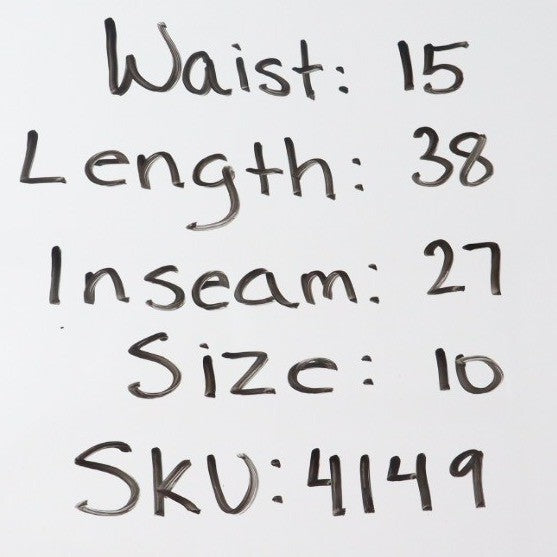 Waist: 15
Length: 38
Inseam: 27
Size: 10
SKU: 4149